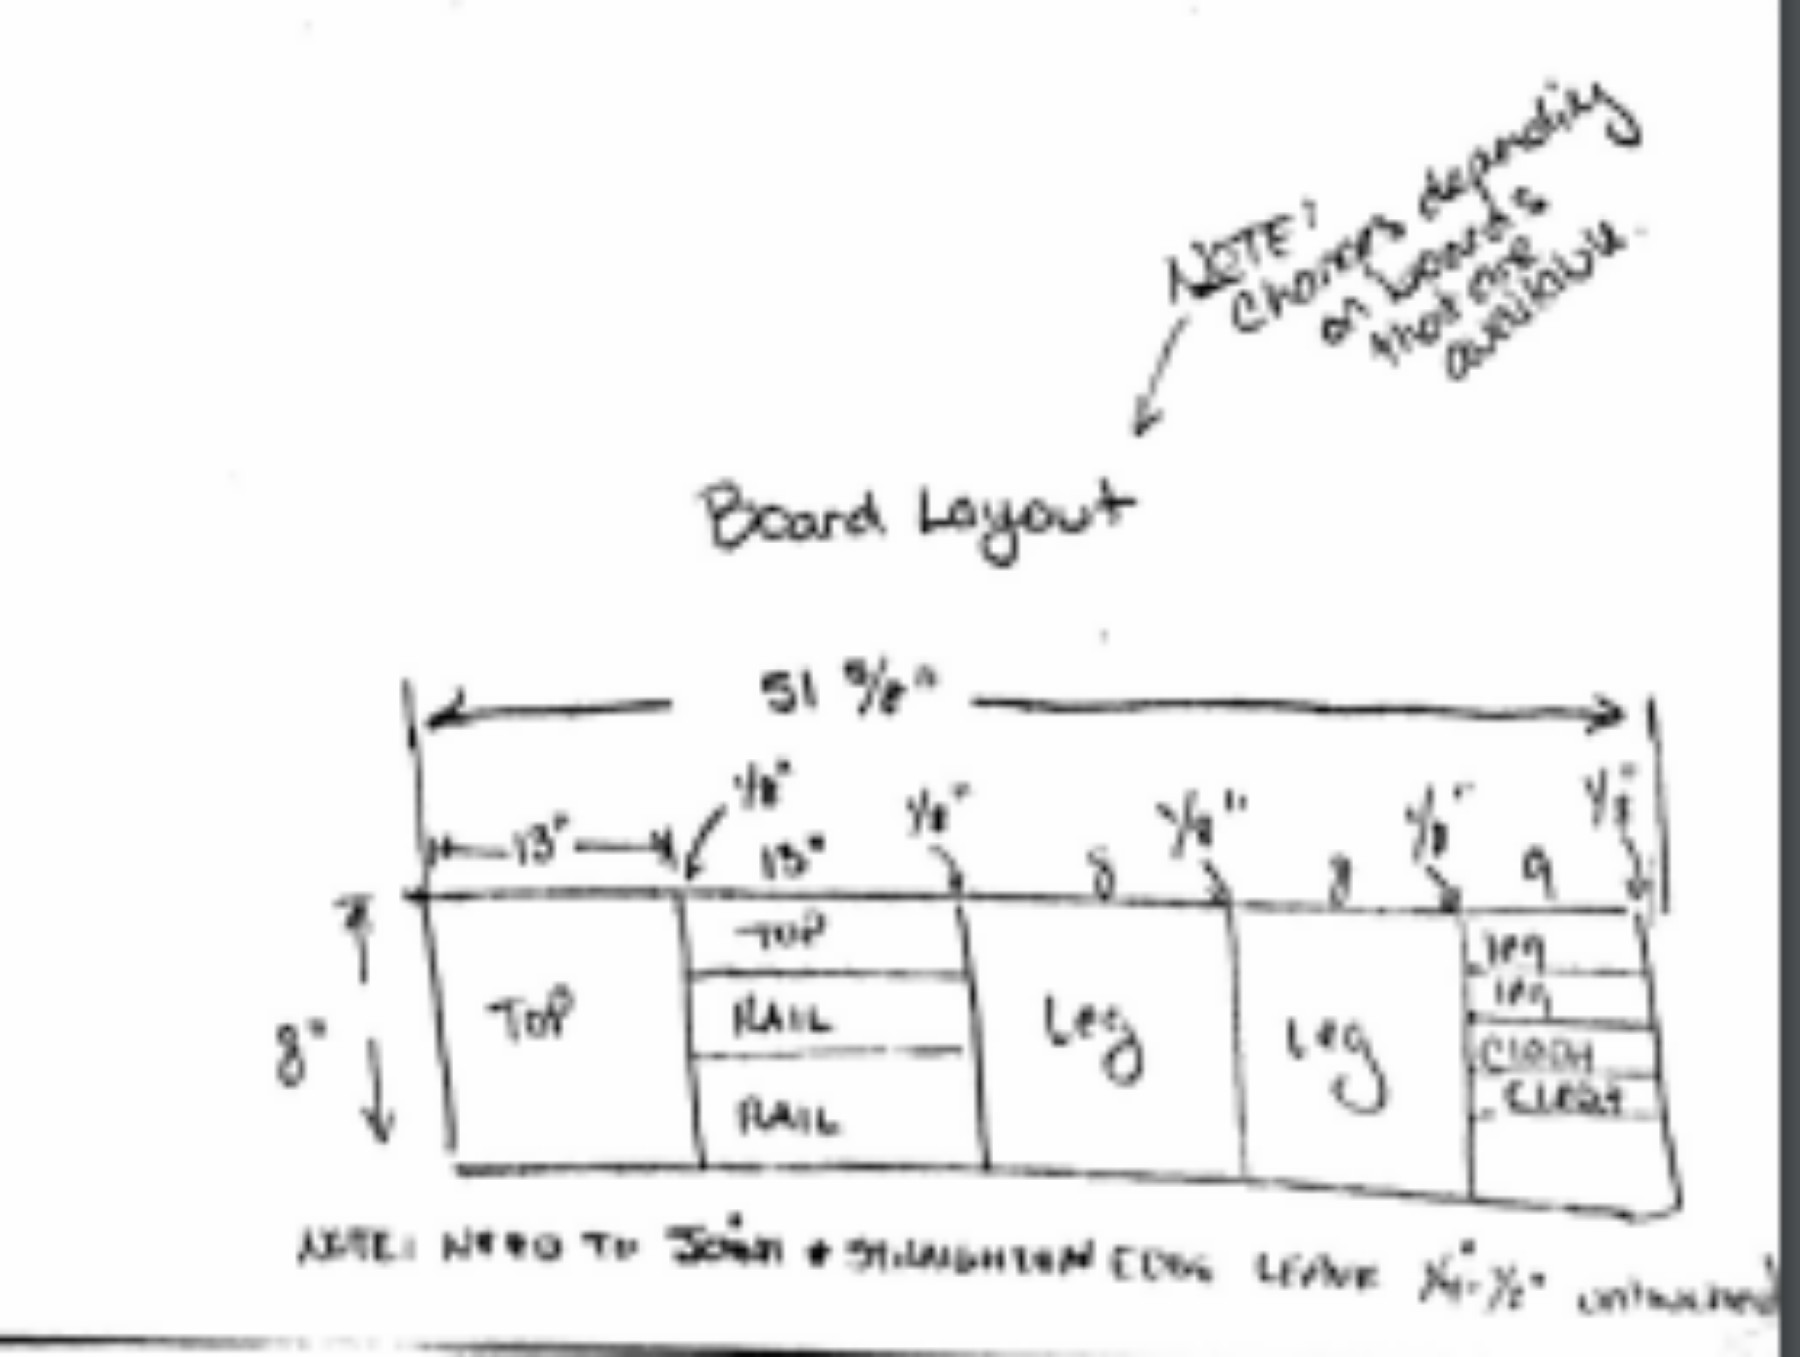 NOTE:
Changes depending
on boards
that are
available.
Board Layout
51 5/8"
1/8" 1/8" 1/8" 1/8" 1/8"
13" 13" 8 8 9
8"
TOP
TOP
RAIL
RAIL
Leg
Leg
leg
leg
CLEAT
CLEAT
NOTE: NEED TO Join + STRAIGHTEN EDGE LEAVE 1/4"-1/2" untouched